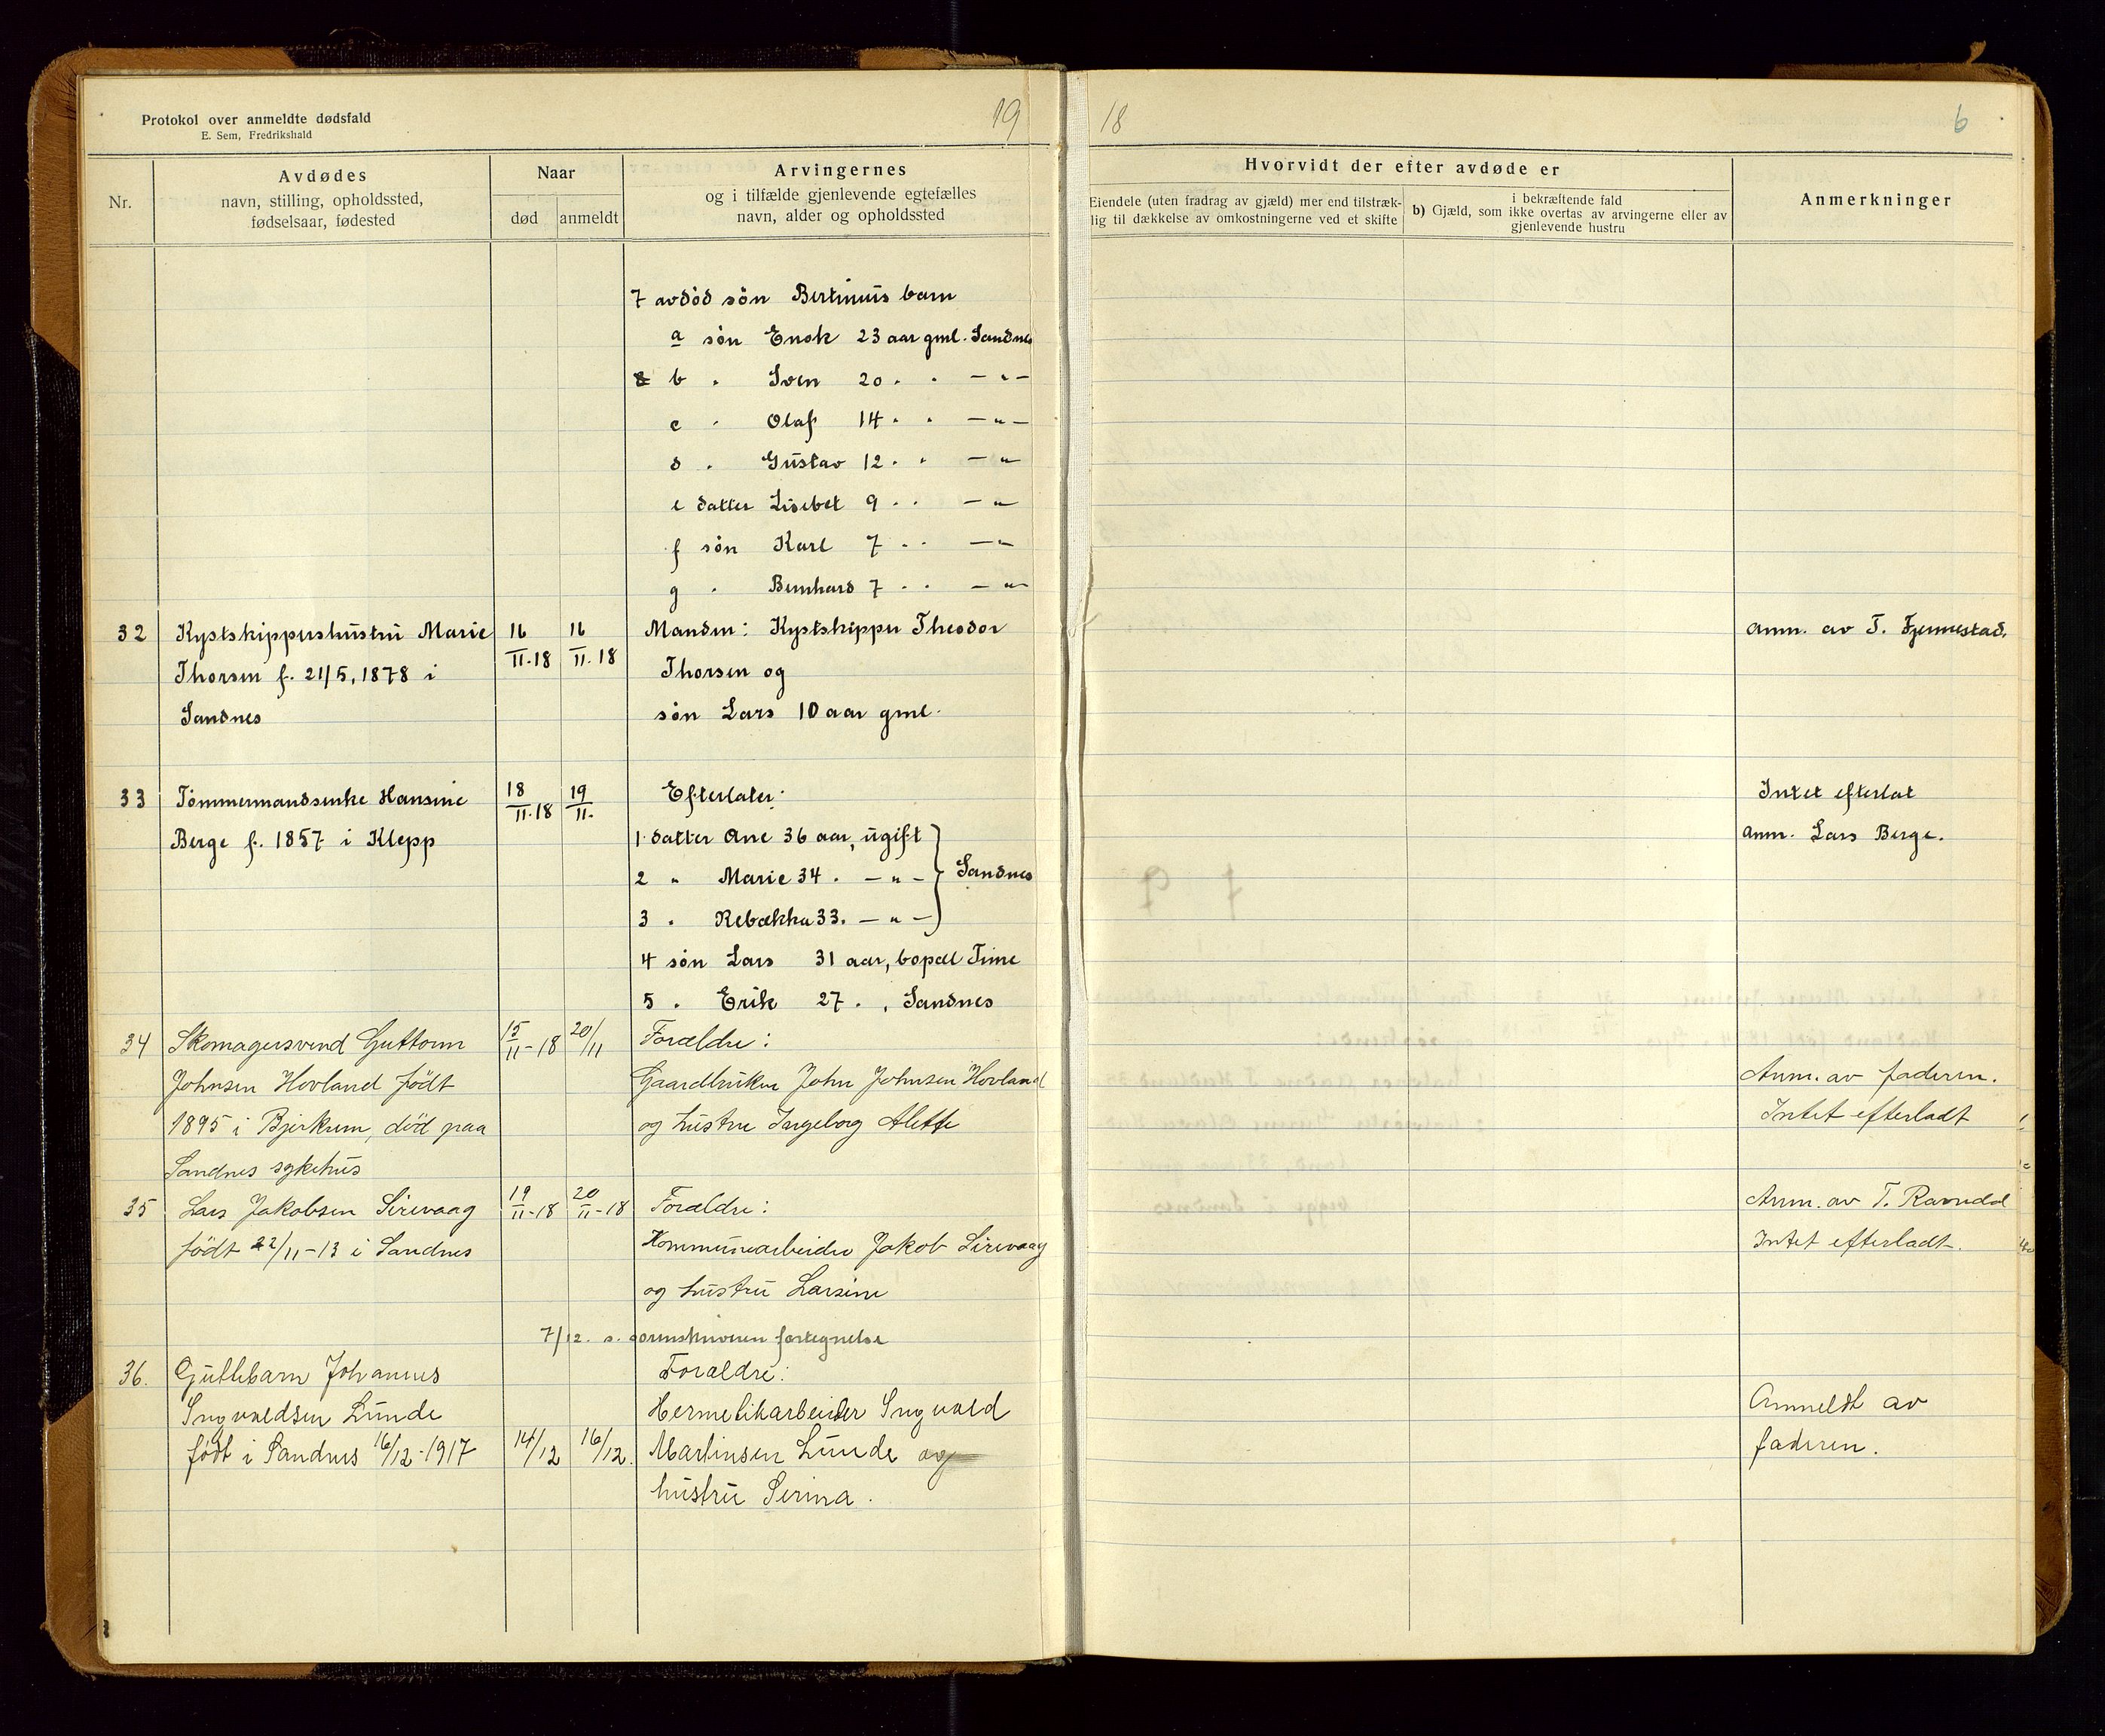 Protokol over anmeldte dødsfald
E. Sem, Fredrikshald
19
18
6
Nr.
Avdødes
navn, stilling, opholdssted,
fødselsaar, fødested
Naar
død
anmeldt
Arvingernes
og i tilfælde gjenlevende egtefælles
navn, alder og opholdssted
Hvorvidt der efter avdøde er
Eiendele (uten fradrag av gjæld) mer end tilstræk-
lig til dækkelse av omkostningerne ved et skifte
i bekræftende fald
b) Gjæld, som ikke overtas av arvingerne eller av
gjenlevende hustru
Anmerkninger
7 avdød søn Bertinius barn
a søn Enok 23 aar gml. Sandnes
b " Sven 20 " " — " —
c " Olaf 14 " " — " —
d " Gustav 12 " " — "
e datter Lisebet 9 " " — "
f søn Karl 7 " " — "
g " Bernhard 7 " " — " —
32 Kystskippershustru Marie 16 16 Manden: Kystskipper Theodor anm. av T. Fjermestad.
Thorsen f. 21/5, 1878 i 11-18 11.18 Thorsen og
Sandnes søn Lars 10 aar gml.
33 Tømmermandsenke Hansine 18 19 Efterlater: Intet efterlat
Berge f. 1857 i Klepp 11-18 11. 1 datter Ane 36 aar, ugift anm. Lars Berge.
2 " Marie 34 " — " — Sandnes
3 " Rebækka 33. — " —
4 søn Lars 31 aar, bopæl Time
5 " Erik 27 " , Sandnes
34 Skomagersvend Guttorm 15 20/11 Forældre:
Johnsen Hovland født 11-18 Gaardbruker John Johnsen Hovland Anm. av faderen.
1895 i Bjerkrem, død paa og hustru Ingeborg Alette Intet efterladt
Sandnes sykehus
35 Lars Jakobsen Sirevaag 19 20 Forældre: Anm. av T. Ravndal
født 22/11-13 i Sandnes 11-18 11-18 Kommunearbeider Jakob Sirevaag Intet efterladt.
og hustru Larsine
7/12. s. sorenskriveren fortegnelse
36. Guttebarn Johannes Forældre:
Ingvaldsen Lunde Hermetikarbeider Ingvald Anmeldt av
født i Sandnes 16/12-1917 14/12 16/12. Martinsen Lunde og faderen.
hustru Serina.